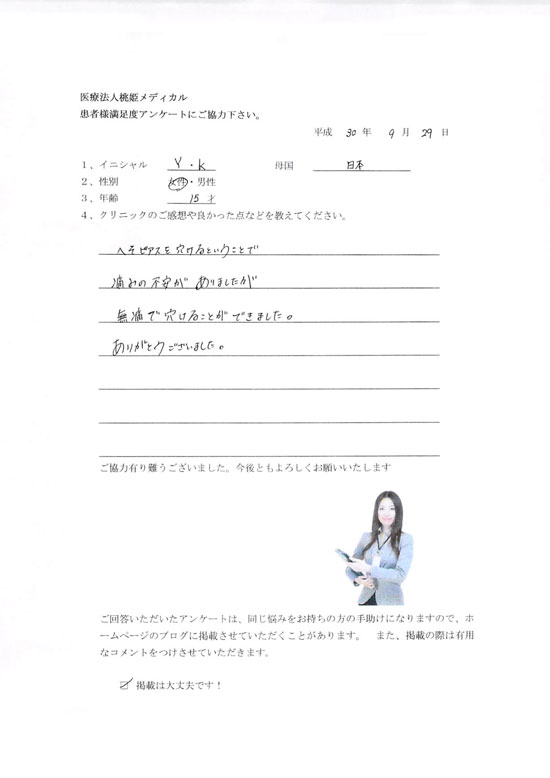 医療法人桃姫メディカル
患者様満足度アンケートにご協力下さい。
平成 30 年 9 月 29 日
1、イニシャル Y・K 母国 日本
2、性別 女性・男性
3、年齢 15 才
4、クリニックのご感想や良かった点などを教えてください。
へそピアスを穴けるということで
痛みの不安がありましたが
無痛で穴けることができました。
ありがとうございました。
ご協力有り難うございました。今後ともよろしくお願いいたします
ご回答いただいたアンケートは、同じ悩みをお持ちの方の手助けになりますので、ホ
ームページのブログに掲載させていただくことがあります。 また、掲載の際は有用
なコメントをつけさせていただきます。
☑ 掲載は大丈夫です！